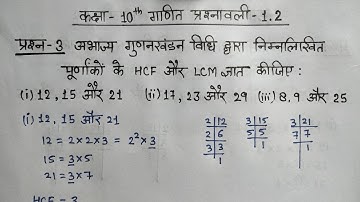 कक्षा - 10th गणित प्रश्नावली - 1.2
प्रश्न - 3 अभाज्य गुणनखंडन विधि द्वारा निम्नलिखित
पूर्णांकों के HCF और LCM ज्ञात कीजिए :
(i) 12, 15 और 21 (ii) 17, 23 और 29 (iii) 8, 9 और 25
(i) 12, 15 और 21
12 = 2 × 2 × 3 = 2² × 3
15 = 3 × 5
21 = 3 × 7
2 | 12
2 | 6
3 | 3
1
3 | 15
5 | 5
1
3 | 21
7 | 7
1
HCF = 3